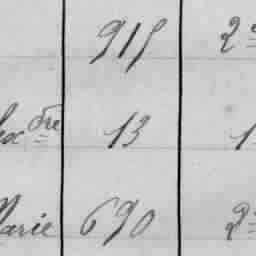 915 2e
dre 13 1
Marie 690 2e